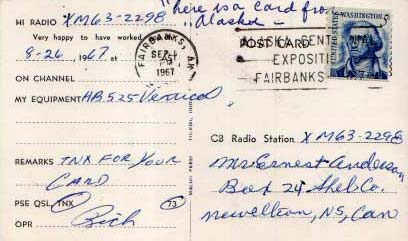 "Here is a card from
Alaska"
HI RADIO XM63-2298
Very happy to have worked
8-26 1967 at
ON CHANNEL
MY EQUIPMENT HB525 Vertical
REMARKS TNX FOR YOUR
CARD
PSE QSL TNX 73
OPR Rich
FAIRBANKS, AK.
SEP
1967
POST CARD
ALASKA CENT
EXPOSITI
FAIRBANKS
WASHINGTON
CB Radio Station XM63-2298
Mr Ernest Anderson
Box 24 Shel. Co.
Newellton, NS, Can